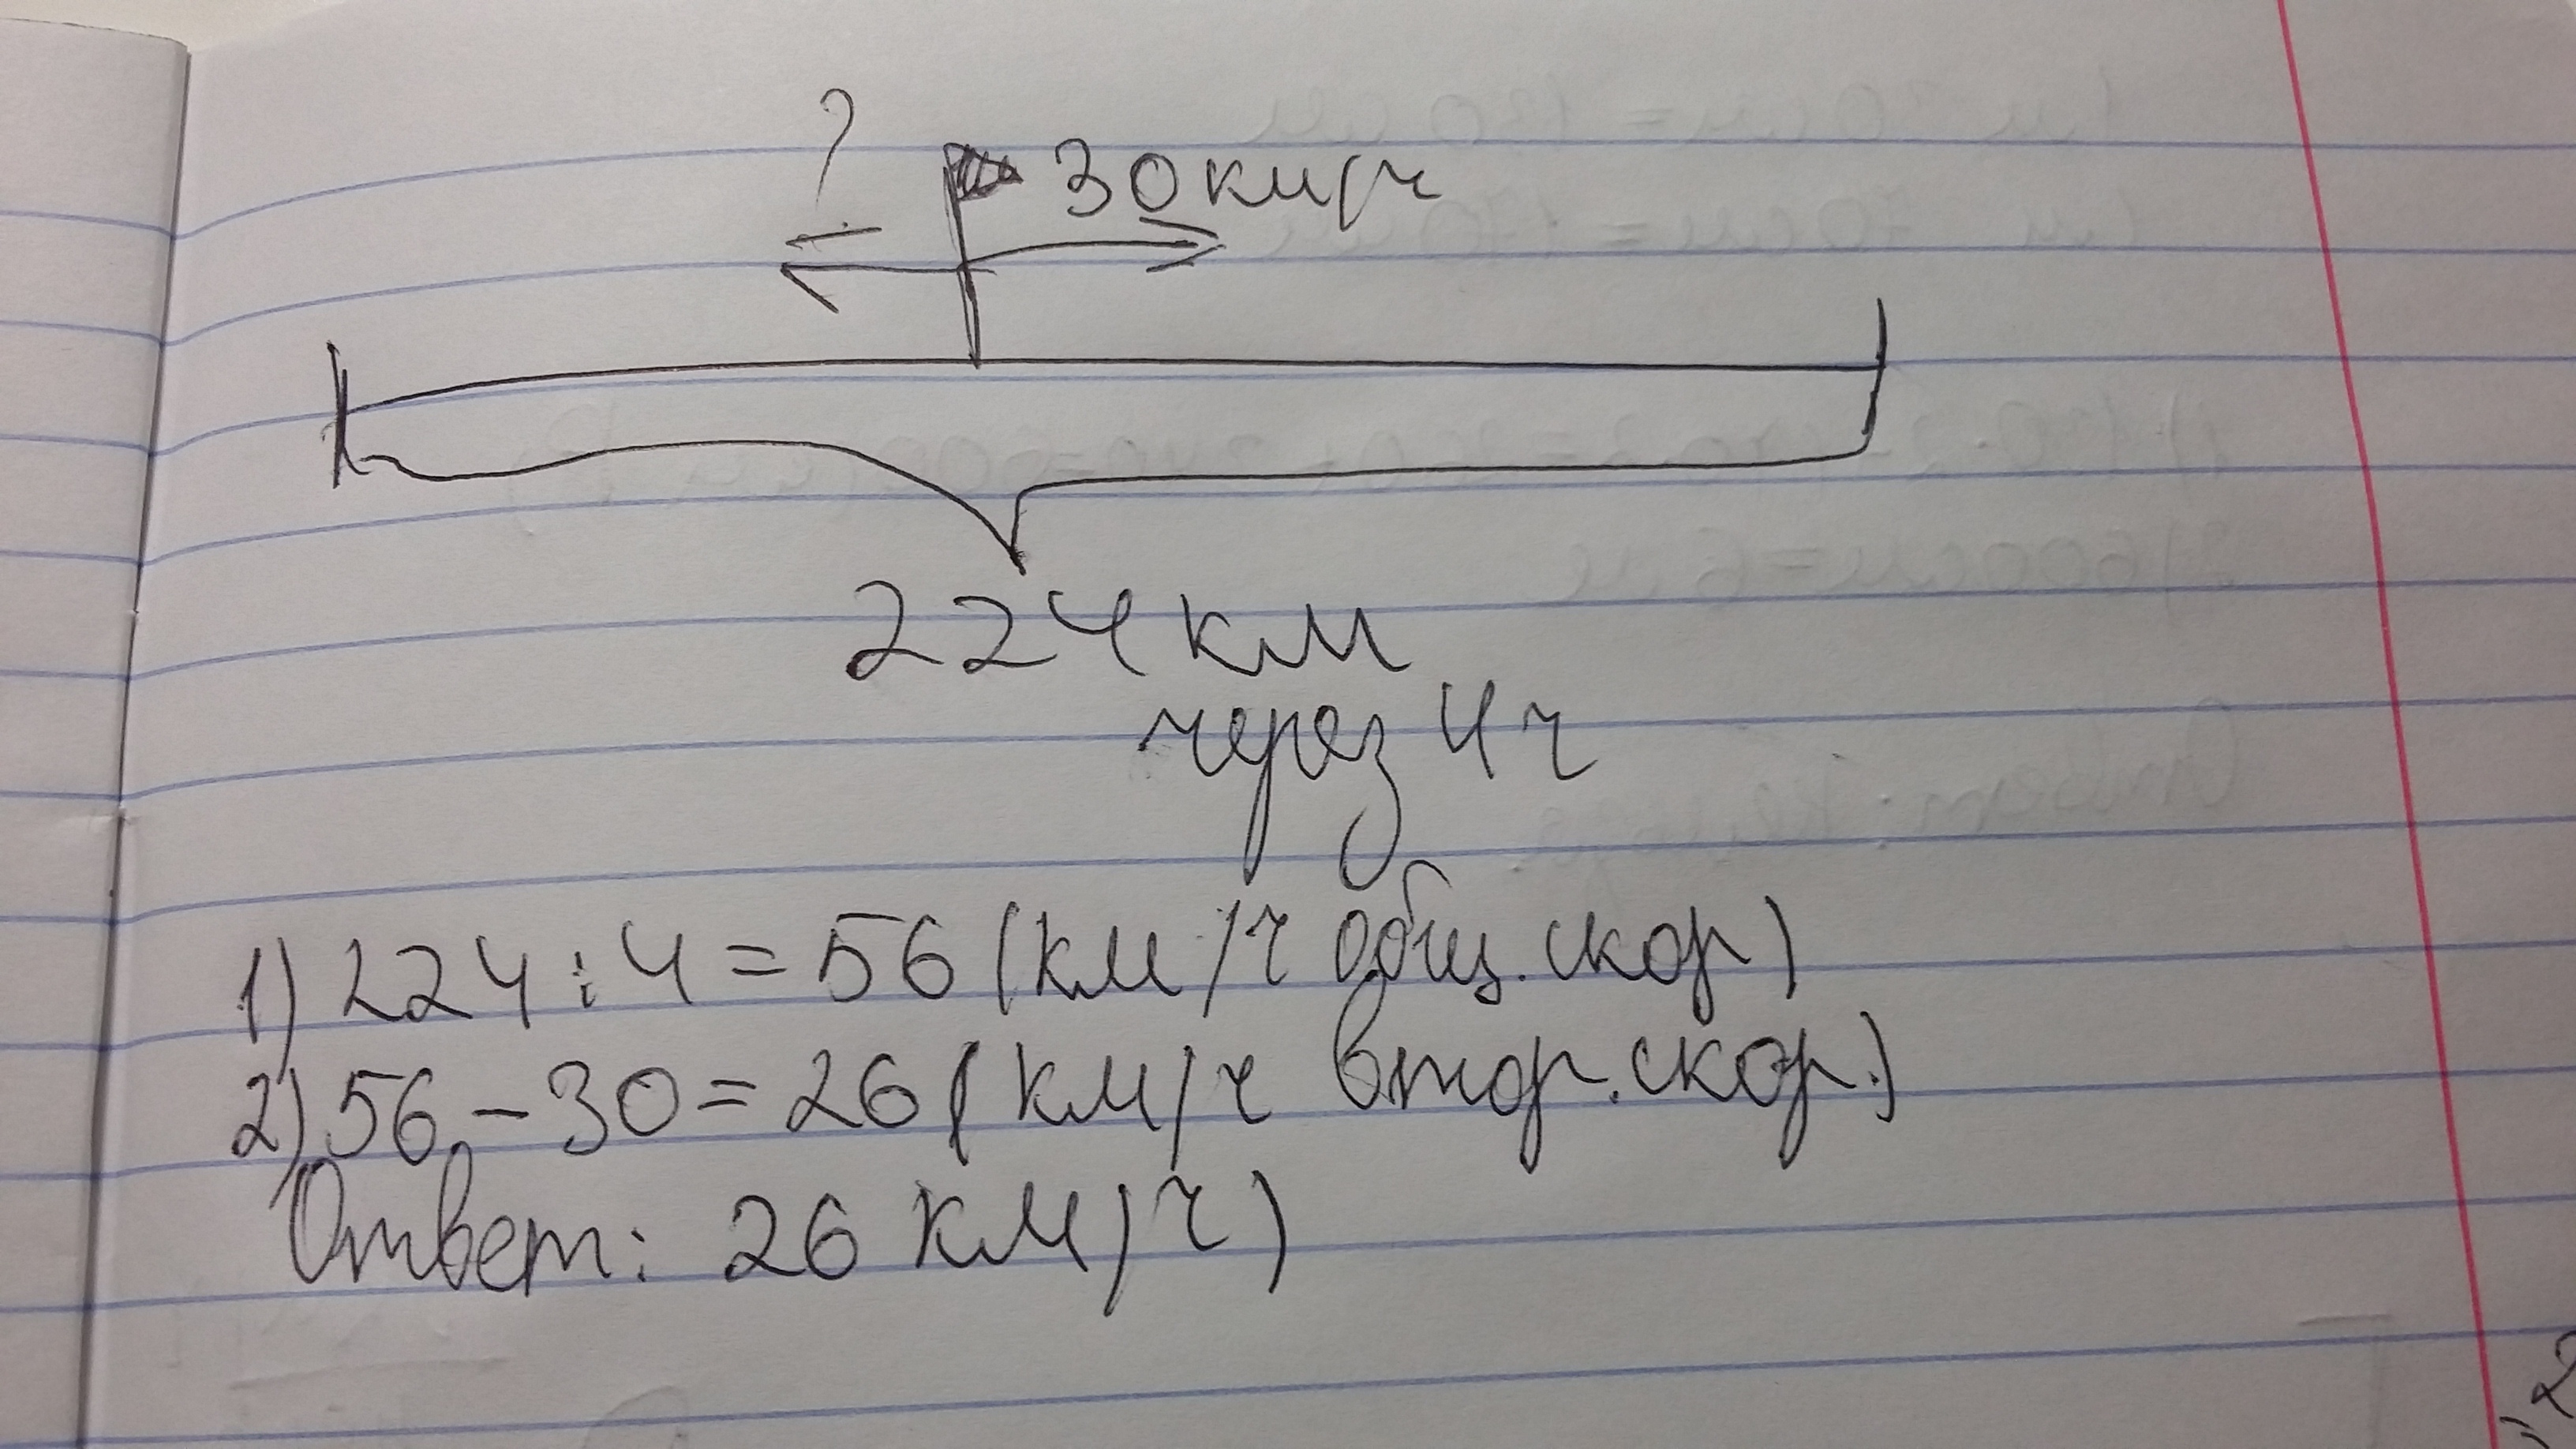 ?
30 км/ч
224 км
через 4 ч
1) 224 : 4 = 56 (км/ч общ. скор)
2) 56 - 30 = 26 (км/ч втор. скор.)
Ответ: 26 км/ч)